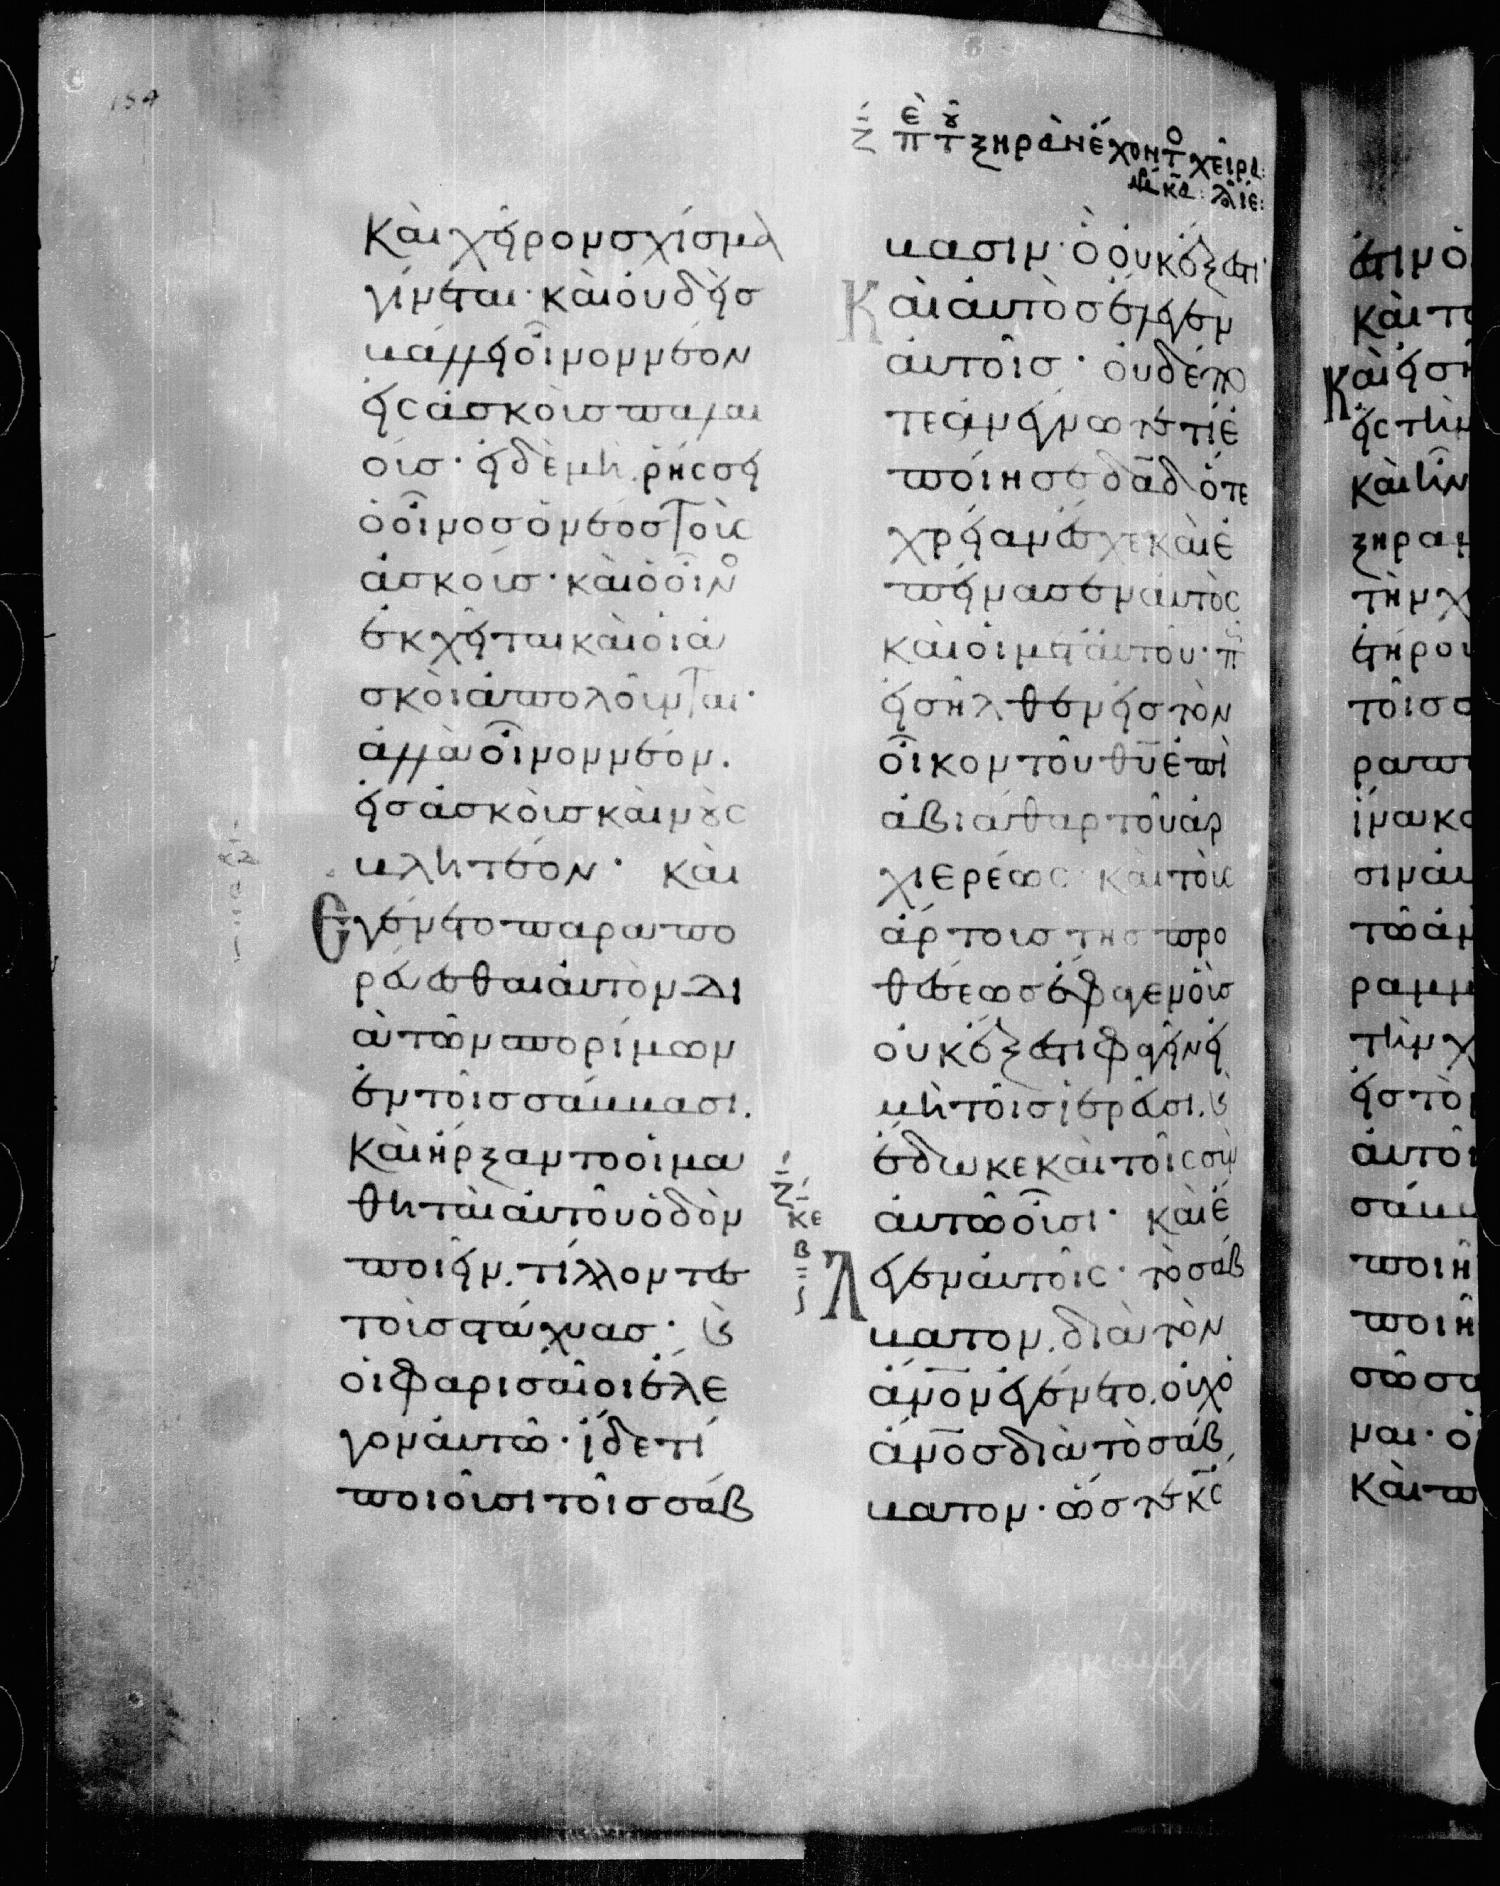 154
ζ πε του ξηρὰν ἔχοντο χεῖρα:
καὶ χεῖρον σχίσμα
γίνεται· καὶ οὐδεὶσ
βάλλει οἶνον νέον
εἰς ἀσκοὺσ παλαι
οὺσ· εἰ δὲ μὴ. ῥήσσει
ὁ οἶνοσ ὁ νέοσ τοὺς
ἀσκούσ· καὶ ὁ οἶνο
ἐκχεῖται καὶ οἱ ἀ
σκοὶ ἀπολοῦνται·
ἀλλὰ οἶνον νέον.
εἰσ ἀσκοὺσ καινοὺς
βλητέον· καὶ
Εγένετο παραπο
ρεύεσθαι αὐτὸν δι
ὰ τῶν σπορίμων
ἐν τοῖσ σάββασι.
Καὶ ἤρξαντο οἱ μα
θηταὶ αὐτοῦ ὁδὸν
ποιεῖν. τίλλοντεσ
τοὺσ στάχυασ· κ
οἱ φαρισαῖοι ἔλε
γον αὐτῶ· ἴδε τί
ποιοῦσι τοῖσ σάβ
βασιν· ὃ οὐκ ἔξεστι·
Καὶ αὐτὸσ ἔλεγεν
αὐτοῖσ· οὐδέπο
τε ἀνέγνωτε τί ἐ
ποίησε δαδ ὅτε
χρείαν ἔσχε καὶ ἐ
πείνασεν αὐτὸς
καὶ οἱ μετ' αὐτοῦ· πς
εἰσῆλθεν εἰσ τὸν
οἶκον τοῦ θυ ἐπὶ
ἀβιάθαρ τοῦ ἀρ
χιερέως καὶ τοὺς
ἄρτουσ τῆσ προ
θέσεωσ ἔφαγεν οὓσ
οὐκ ἔξεστι φαγεῖν εἰ
μὴ τοῖσ ἱερεῦσι. κ
ἔδωκε καὶ τοῖς σὺν
αὐτῶ οὖσι· καὶ ἔ
λεγεν αὐτοῖς· τὸ σάβ
βατον. διὰ τὸν
ἄνον ἐγένετο. οὐχ ὁ
ἄνοσ διὰ τὸ σάβ
βατον· ὥστε κς